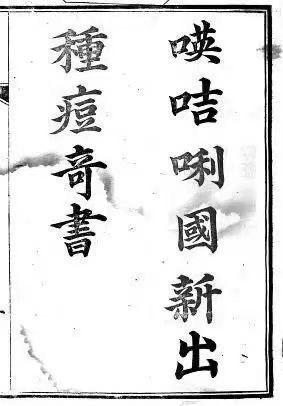 𠸄咭唎國新出
種痘奇書